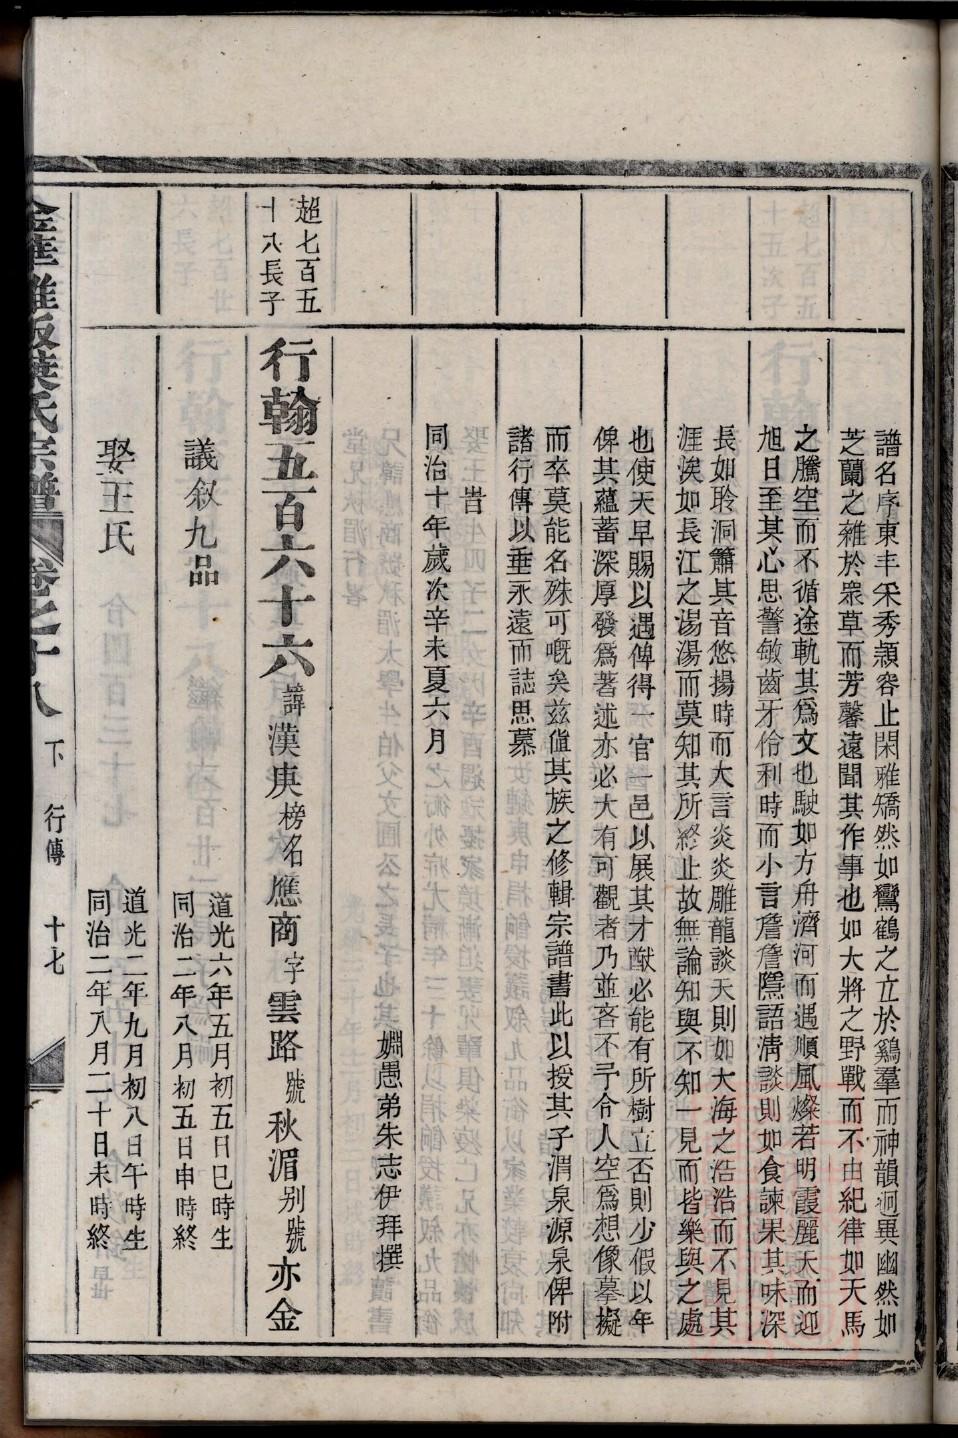 譜名序東丰采秀頴容止閑雅矯然如鸞鶴之立於鷄羣而神韻迥異幽然如
芝蘭之雜於衆草而芳馨遠聞其作事也如大將之野戰而不由紀律如天馬
之騰空而不循途軌其爲文也駛如方舟濟河而遇順風燦若明霞麗天而迎
旭日至其心思警敏齒牙伶利時而小言詹詹隱語淸談則如食諫果其味深
長如聆洞簫其音悠揚時而大言炎炎雕龍談天則如大海之浩浩而不見其
涯涘如長江之湯湯而莫知其所終止故無論知與不知一見而皆樂與之處
也使天早賜以遇俾得一官一邑以展其才猷必能有所樹立否則少假以年
俾其蘊蓄深厚發爲著述亦必大有可觀者乃並吝不予令人空爲想像摹擬
而卒莫能名殊可嘅矣兹值其族之修輯宗譜書此以授其子渭泉源泉俾附
諸行傳以垂永遠而誌思慕
旹
同治十年歲次辛未夏六月
姻愚弟朱志伊拜撰
超七百五
十八長子
行翰五百六十六諱漢庚榜名應商字雲路號秋湄别號亦金
議叙九品
道光六年五月初五日巳時生
同治二年八月初五日申時終
娶王氏
道光二年九月初八日午時生
同治二年八月二十日未時終
葉氏宗譜 卷之十八下 行傳 十七